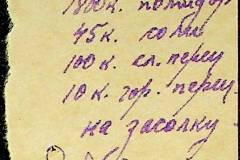 1800к. помидор
45к. соли
100к. сл. перец
10к. гор. перец
на засолку